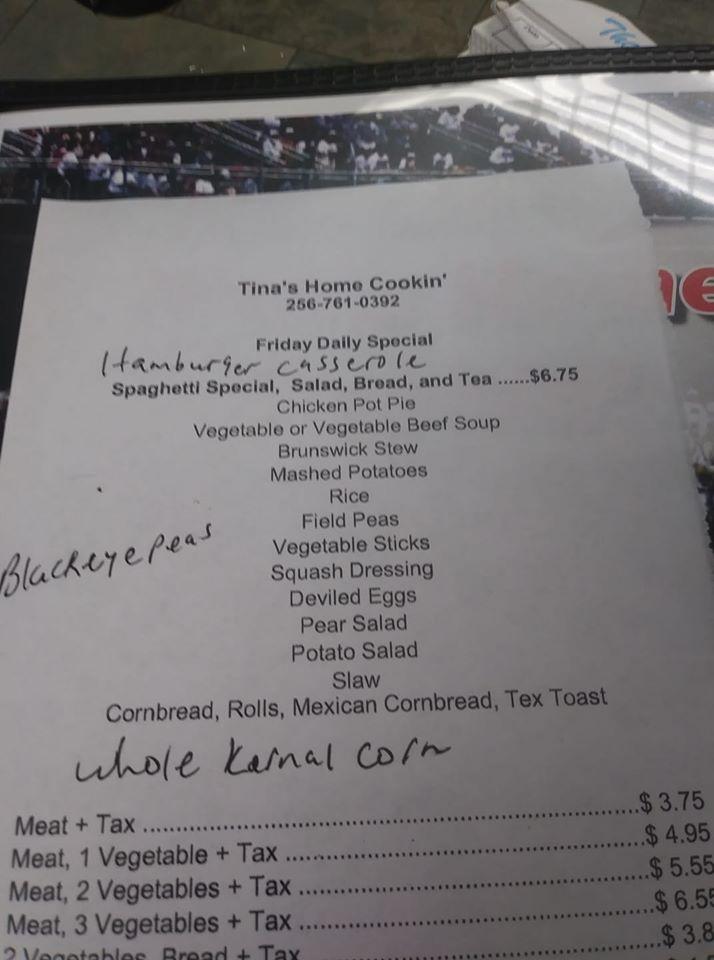 Tina's Home Cookin'
256-761-0392
Friday Daily Special
Hamburger casserole
Spaghetti Special, Salad, Bread, and Tea ......$6.75
Chicken Pot Pie
Vegetable or Vegetable Beef Soup
Brunswick Stew
Mashed Potatoes
Rice
Field Peas
Blackeye peas
Vegetable Sticks
Squash Dressing
Deviled Eggs
Pear Salad
Potato Salad
Slaw
Cornbread, Rolls, Mexican Cornbread, Tex Toast
whole Karnal corn
Meat + Tax ..................................................$ 3.75
Meat, 1 Vegetable + Tax ....................................$ 4.95
Meat, 2 Vegetables + Tax ...................................$ 5.55
Meat, 3 Vegetables + Tax ...................................$ 6.55
2 Vegetables, Bread + Tax ..................................$ 3.8